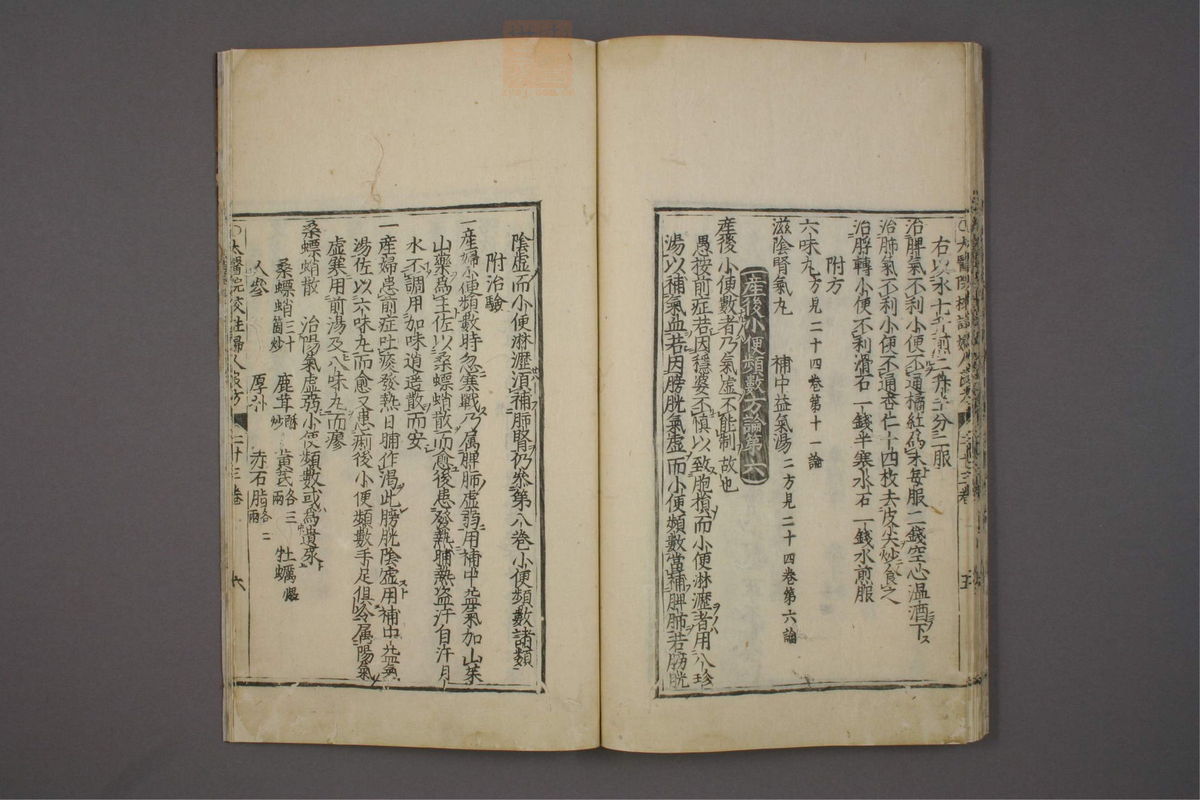 右以水十升煎二升半分三服
治脾氣不利小便不通橘紅為末每服二錢空心温酒下
治肺氣不利小便不通杏仁十四枚去皮尖炒食之
治脬轉小便不利滑石一錢半寒水石一錢水煎服
附方
六味丸方見二十四卷第十一論
滋陰腎氣丸　補中益氣湯二方見二十四卷第六論
產後小便頻數方論第六
產後小便數者乃氣虛不能制故也
愚按前症若因穩婆不慎以致胞損而小便淋瀝者用八珍
湯以補氣血若因膀胱氣虛而小便頻數當補脾肺若膀胱
五
陰虛而小便淋瀝須補肺腎仍叅第八卷小便頻數諸類
附治驗
一產婦小便頻數時忽寒戰乃属脾肺虛弱用補中益氣加山茱
山藥為主佐以桑螵蛸散而愈後患發熱晡熱盗汗自汗月
水不調用加味逍遥散而安
一產婦患前症吐痰發熱日晡作渴此膀胱陰虛用補中益氣
湯佐以六味丸而愈又患痢後小便頻數手足俱冷属陽氣
虛寒用前湯及八味丸而瘳
桑螵蛸散　治陽氣虛弱小便頻數或為遺尿
桑螵蛸三十箇炒　鹿茸酥炒　黃芪各三兩　牡蠣煅
人參　厚朴　赤石脂各二兩
太醫院校註婦人良方　二十三卷　六